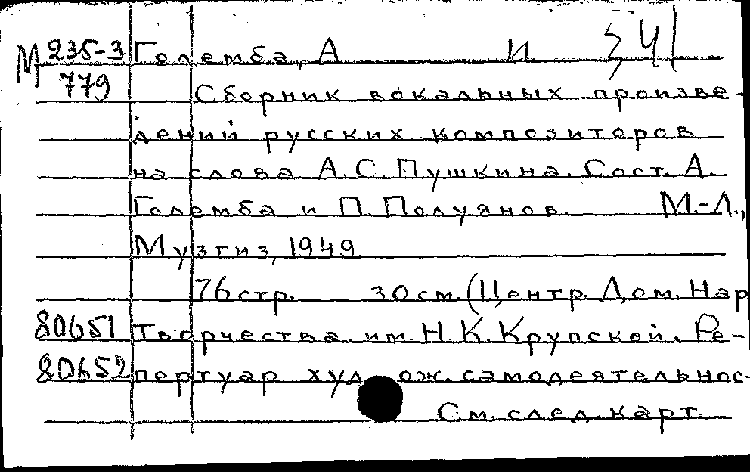 М 235-3 Големба, А И 341
779 Сборник вокальных произве-
дений русских композиторов
на слова А.С.Пушкина. Сост. А.
Големба и П. Полуянов. М.-Л.,
Музгиз, 1949
76 стр. 30 см. (Центр. Дом. Нар
80651 Творчества им. Н.К.Крупской. Ре-
80652 пертуар худ ож. самодеятельнос-
См. след. карт.